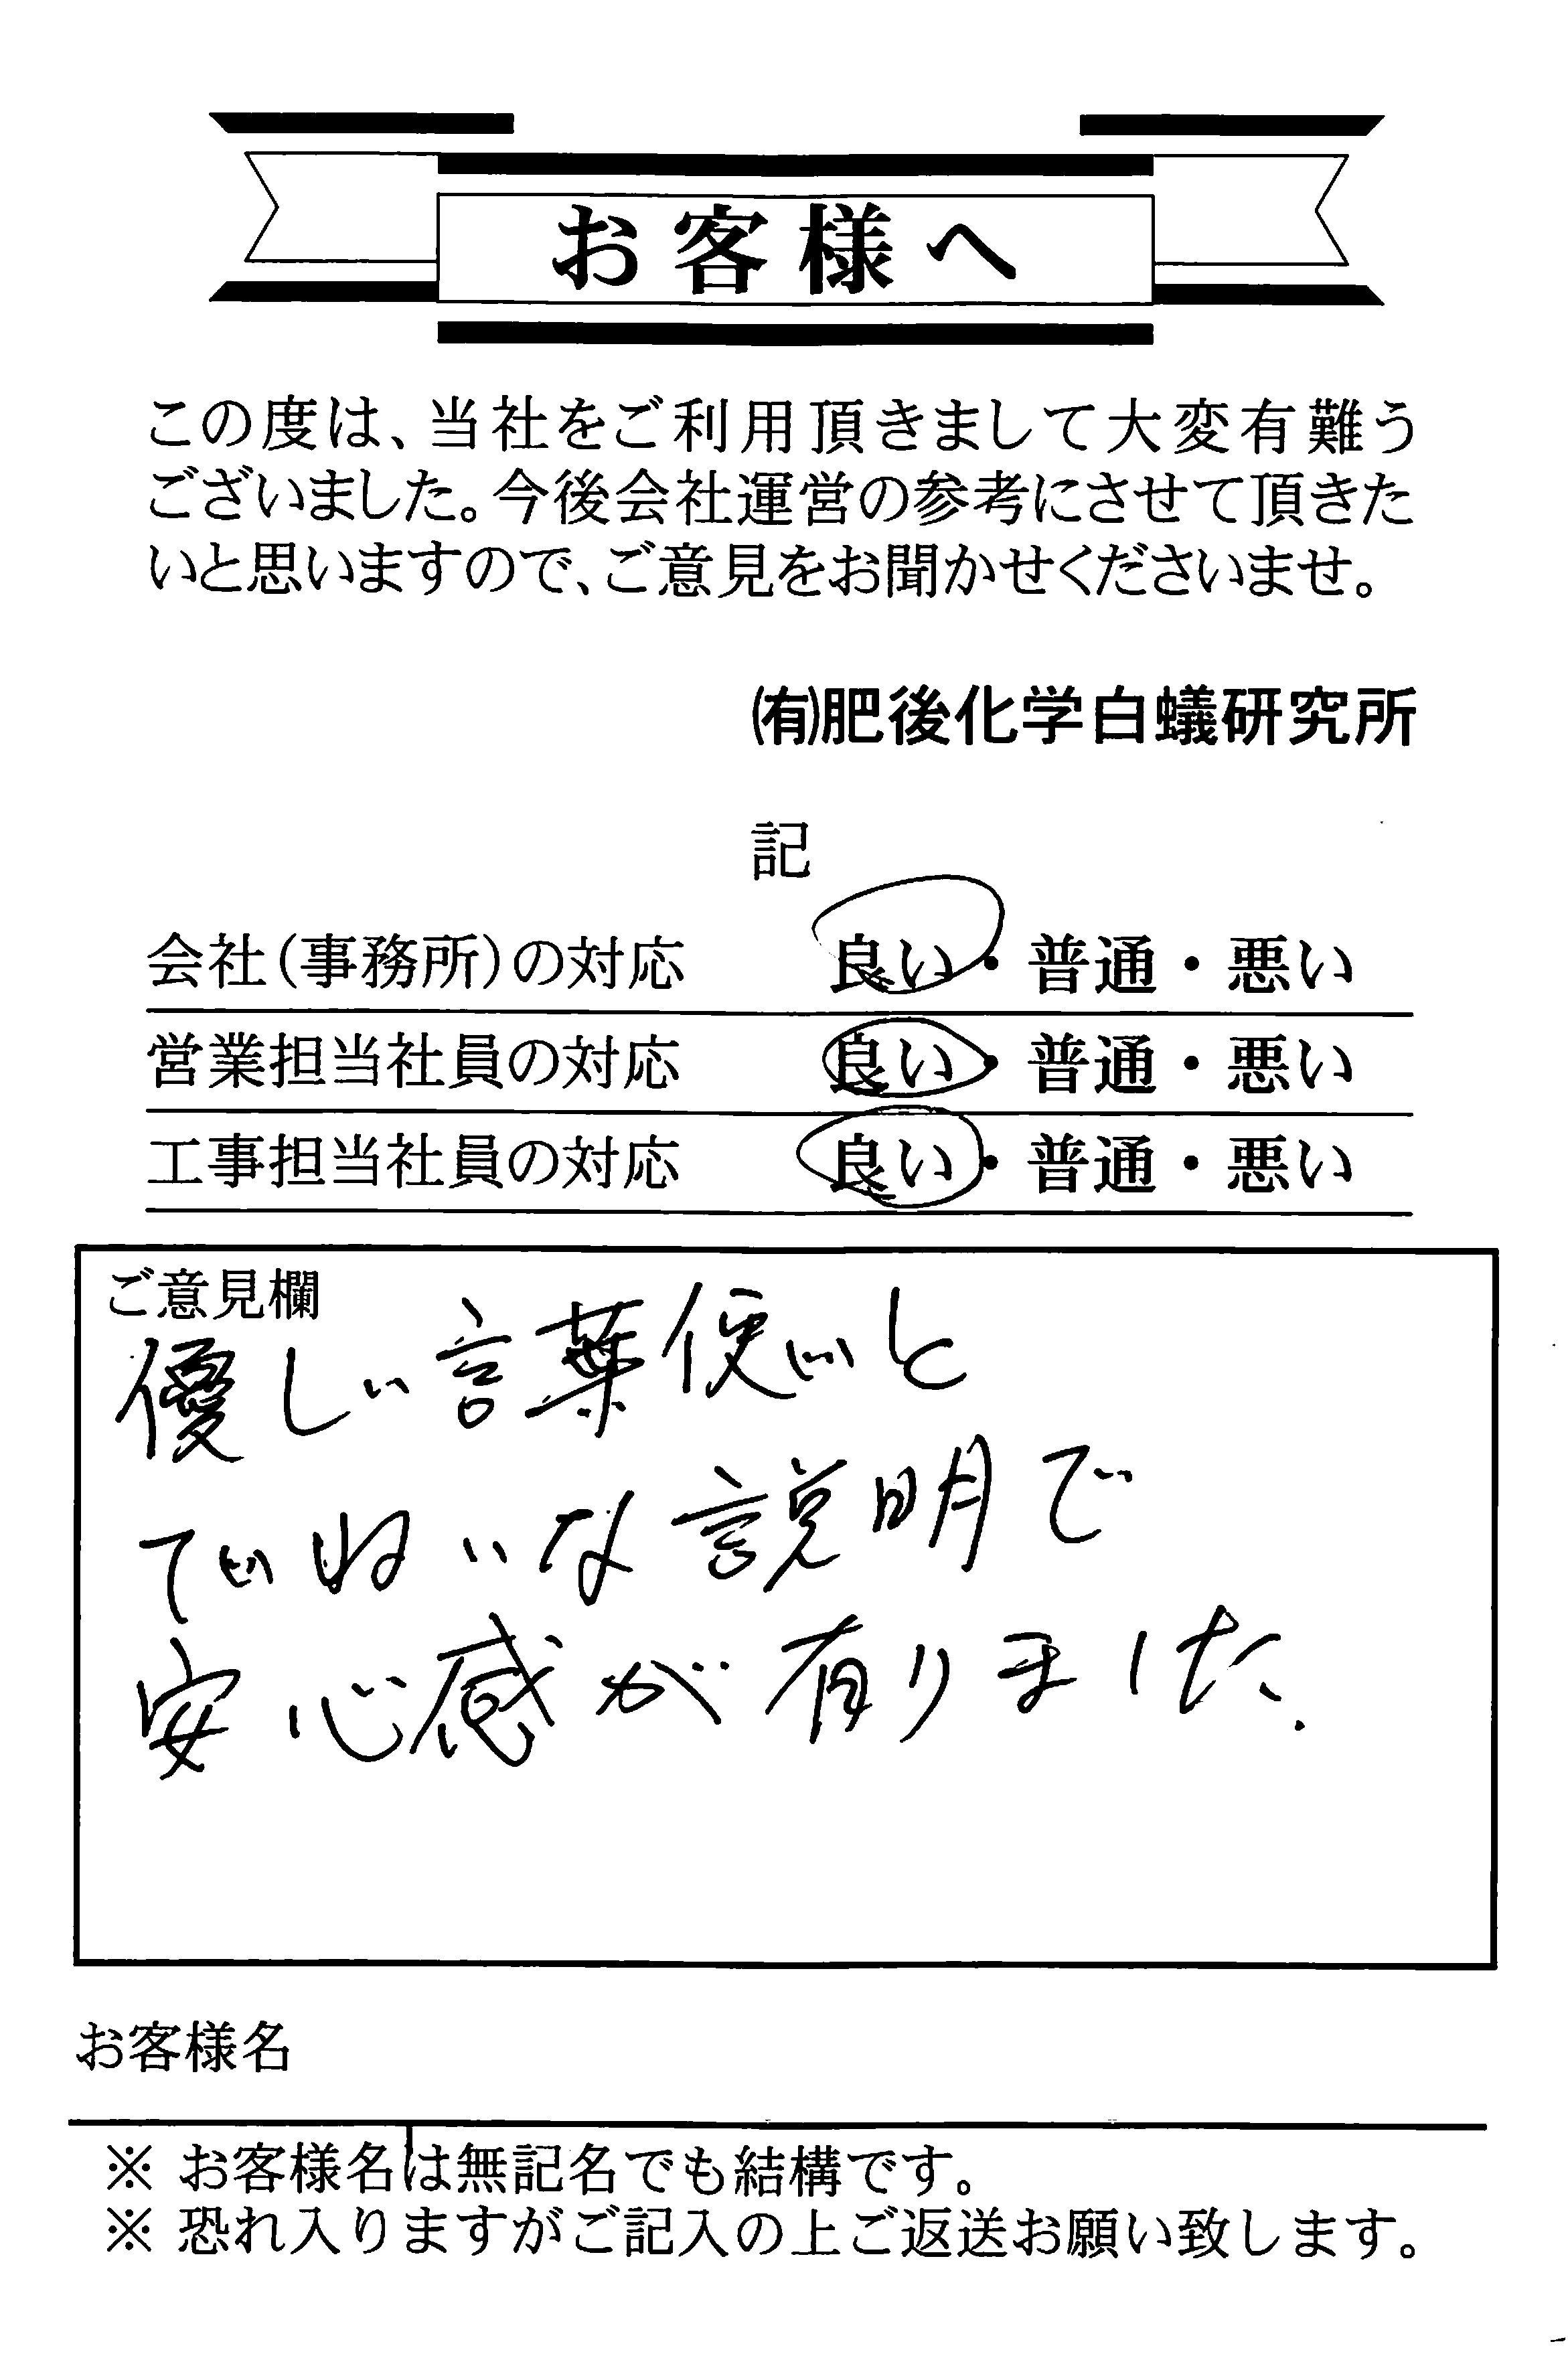 お客様へ
この度は、当社をご利用頂きまして大変有難う
ございました。今後会社運営の参考にさせて頂きた
いと思いますので、ご意見をお聞かせくださいませ。
㈲肥後化学白蟻研究所
記
会社(事務所)の対応 良い・普通・悪い
営業担当社員の対応 良い・普通・悪い
工事担当社員の対応 良い・普通・悪い
ご意見欄
優しい言葉使いと
ていねいな説明で
安心感が有りました.
お客様名
※ お客様名は無記名でも結構です。
※ 恐れ入りますがご記入の上ご返送お願い致します。